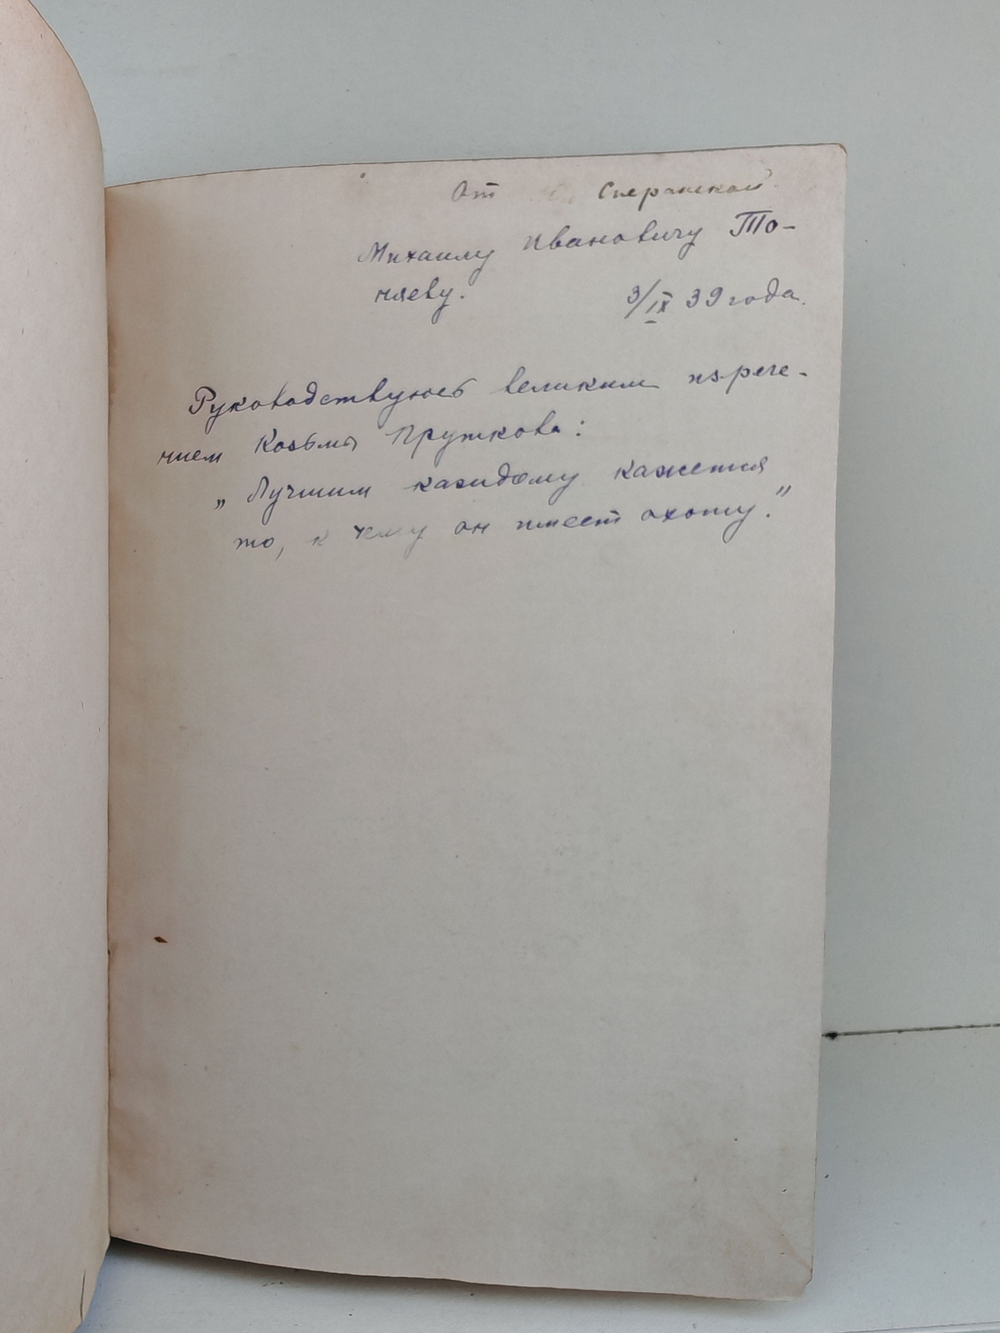 От Сперанской
Михаилу Ивановичу То-
няеву. 3/IX 39 года.
Руководствуюсь великим изрече-
нием Козьмы Пруткова:
„Лучшим каждому кажется
то, к чему он имеет охоту."